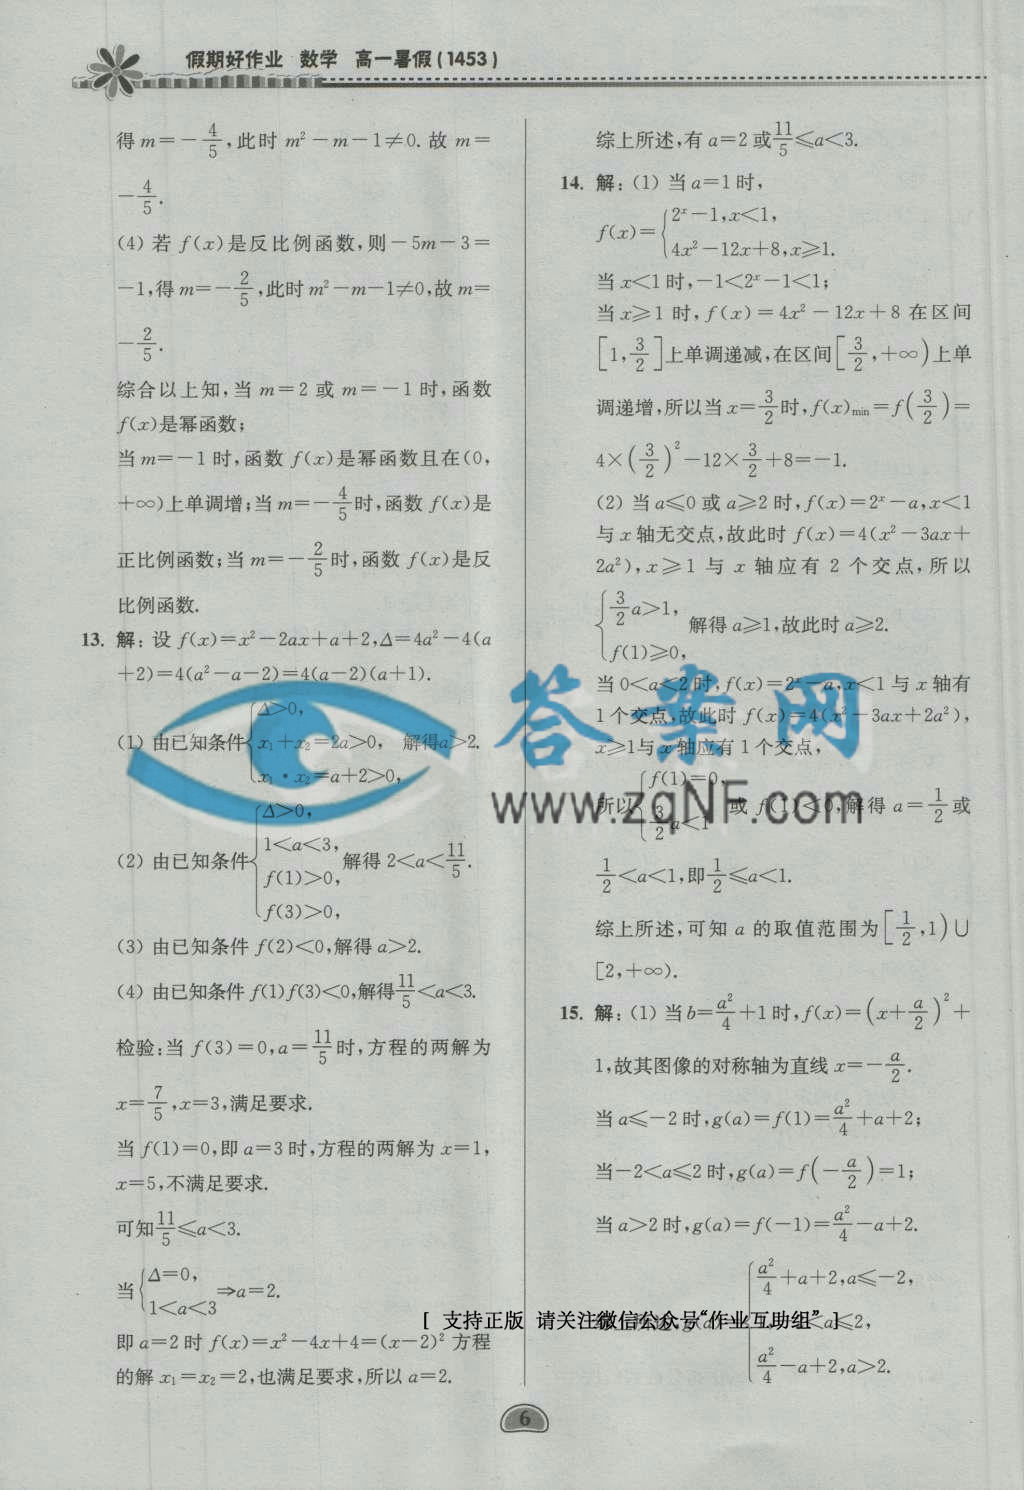 假期好作业 数学 高一暑假(1453)
得 m=-4/5,此时 m²-m-1≠0. 故 m=
-4/5.
(4) 若 f(x)是反比例函数,则-5m-3=
-1,得 m=-2/5,此时 m²-m-1≠0,故 m=
-2/5.
综合以上知,当 m=2 或 m=-1 时,函数
f(x)是幂函数;
当 m=-1 时,函数 f(x)是幂函数且在(0,
+∞)上单调增;当 m=-4/5时,函数 f(x)是
正比例函数;当 m=-2/5时,函数 f(x)是反
比例函数.
13. 解:设 f(x)=x²-2ax+a+2,Δ=4a²-4(a
+2)=4(a²-a-2)=4(a-2)(a+1).
(1) 由已知条件{Δ>0, x₁+x₂=2a>0, x₁·x₂=a+2>0, 解得a>2.
(2) 由已知条件{Δ>0, 1<a<3, f(1)>0, f(3)>0, 解得 2<a<11/5.
(3) 由已知条件 f(2)<0,解得 a>2.
(4) 由已知条件 f(1)f(3)<0,解得11/5<a<3.
检验:当 f(3)=0,a=11/5时,方程的两解为
x=7/5,x=3,满足要求.
当 f(1)=0,即 a=3 时,方程的两解为 x=1,
x=5,不满足要求.
可知11/5≤a<3.
当{Δ=0, 1<a<3 ⇒a=2.
即 a=2 时 f(x)=x²-4x+4=(x-2)² 方程
的解 x₁=x₂=2,也满足要求,所以 a=2.
综上所述,有 a=2 或11/5≤a<3.
14. 解:(1) 当 a=1 时,
f(x)={2ˣ-1,x<1, 4x²-12x+8,x≥1.
当 x<1 时,-1<2ˣ-1<1;
当 x≥1 时, f(x)=4x²-12x+8 在区间
[1,3/2]上单调递减,在区间[3/2,+∞)上单
调递增,所以当 x=3/2时,f(x)min=f(3/2)=
4×(3/2)²-12×3/2+8=-1.
(2) 当 a≤0 或 a≥2 时,f(x)=2ˣ-a,x<1
与 x 轴无交点,故此时 f(x)=4(x²-3ax+
2a²),x≥1 与 x 轴应有 2 个交点,所以
{3/2a>1, f(1)≥0, 解得 a≥1,故此时 a≥2.
当 0<a<2 时,f(x)=2ˣ-a,x<1 与 x 轴有
1 个交点,故此时 f(x)=4(x²-3ax+2a²),
x≥1与 x 轴应有 1 个交点,
所以{f(1)=0, 3/2a<1 或 f(1)<0,解得 a=1/2或
1/2<a<1,即1/2≤a<1.
综上所述,可知 a 的取值范围为[1/2,1)∪
[2,+∞).
15. 解:(1) 当 b=a²/4+1 时,f(x)=(x+a/2)²+
1,故其图像的对称轴为直线 x=-a/2.
当 a≤-2 时,g(a)=f(1)=a²/4+a+2;
当-2<a≤2 时,g(a)=f(-a/2)=1;
当 a>2 时,g(a)=f(-1)=a²/4-a+2.
g(a) {a²/4+a+2,a≤-2, <a≤2, a²/4-a+2,a>2.
答案网
www.zqNF.com
[ 支持正版 请关注微信公众号“作业互助组” ]
6